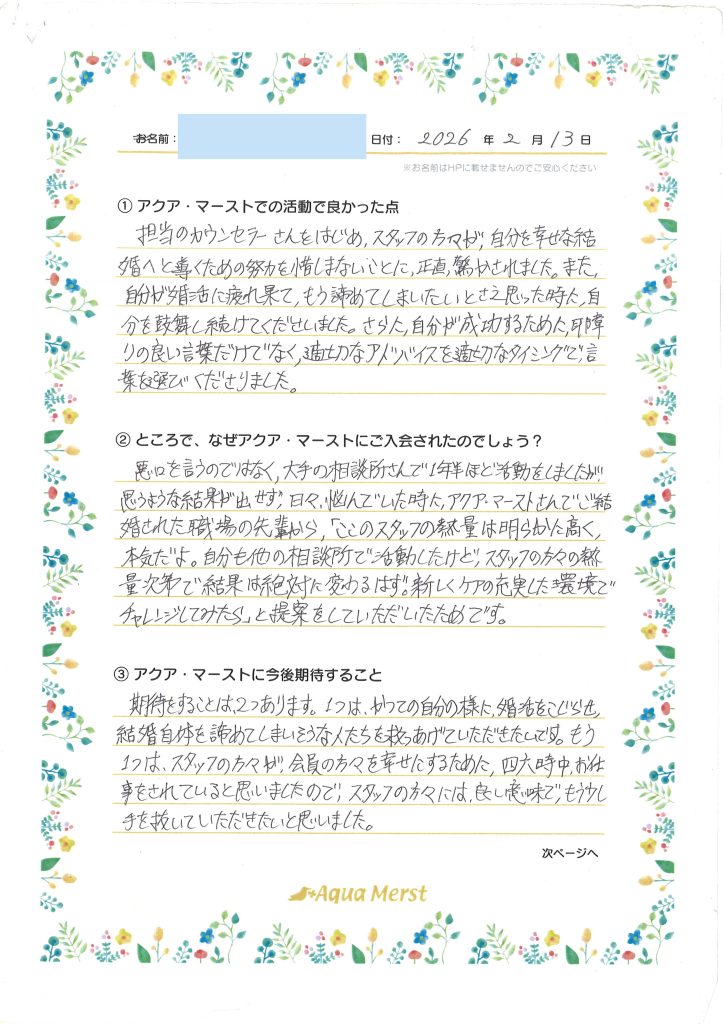 お名前： 日付： 2026 年 2 月 13 日
※お名前はHPに載せませんのでご安心ください
① アクア・マーストでの活動で良かった点
担当のカウンセラーさんをはじめ、スタッフの方々が、自分を幸せな結
婚へと導くための努力を惜しまないことに、正直、驚かされました。また、
自分が婚活に疲れ果て、もう諦めてしまいたいとさえ思った時に、自
分を鼓舞し続けてくださいました。さらに、自分が成功するために、耳障
りの良い言葉だけでなく、適切なアドバイスを適切なタイミングで、言
葉を選びくださりました。
② ところで、なぜアクア・マーストにご入会されたのでしょう？
悪口を言うのではなく、大手の相談所さんで1年半ほど活動をしましたが、
思うような結果が出せず、日々、悩んでいた時に、アクア・マーストさんでご結
婚された職場の先輩から、「ここのスタッフの熱量は明らかに高く、
本気だよ。自分も他の相談所で活動したけど、スタッフの方々の熱
量次第で結果は絶対に変わるはず。新しくケアの充実した環境で
チャレンジしてみたら」と提案をしていただいたためです。
③ アクア・マーストに今後期待すること
期待をすることは、2つあります。1つは、かつての自分の様に、婚活をこじらせ、
結婚自体を諦めてしまいそうな人たちを救いあげていただきたいです。もう
1つは、スタッフの方々が、会員の方々を幸せにするために、四六時中、お仕
事をされていると思いましたので、スタッフの方々には、良い意味で、もう少し
手を抜いていただきたいと思いました。
次ページへ
Aqua Merst